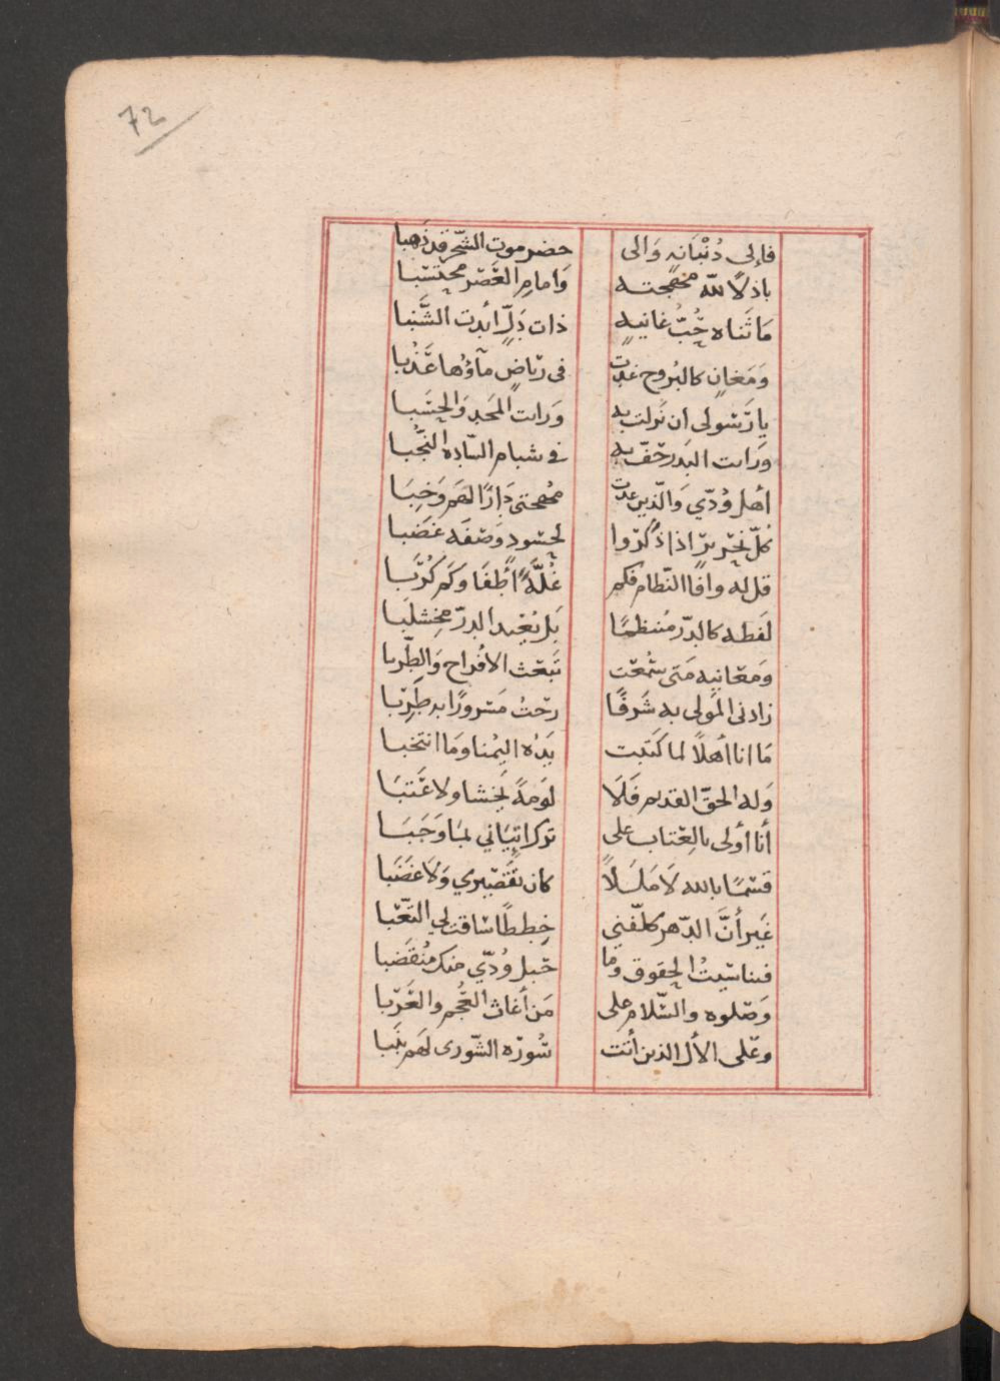 72
فإلى دُنْيَانِهِ وَالى حضرموت الشّحر قد ذهبا
باذلًا لله مهجته وَامامِ العَصْر محتسبا
مَا ثَناه حُبُّ غانيةٍ ذات دَلٍّ أبدت الشَّنبا
وَمَغانٍ كالبُروج غدت فى ريَاضٍ مآؤها عَذُبا
يا رَسولى ان نَزلت به وَرات المَجد وَالحسَبا
ورَات البَدر حَفّ به فى شبام السّاده النُّجُبا
أهل وُدّي وَالّذين غدت مُهجتى دَارًا لهَم وَخِبَا
كُلّ بخيرٍ اذا ذُكروا لحسُودٍ وَصْفَه غضَبا
قل له وافا النّظام فكم غُلَّةً أطْفَا وَكم كُرَبَا
لَفظه كالدّر مُنتظمًا بَل يُعْيد الدرّ مخشلبَا
وَمَعَانيه مَتى سُمعَت تَبعَث الافُراح وَالطّربا
زادنى المَولى به شَرفًا رحْتُ مَسرورًا به طَرِبَا
مَا انا أهلًا لما كتَبت يَدُه اليُمنا وَما انتخبا
وَله الحقّ القديم فَلَا لوَمةً يَخشا ولا عَتبَا
أنا أولى بالعِتاب على تركِ اتيَاني لمَا وَجَبَا
قسَمًا بالله لَا مَللًا كان تَقْصيري وَلَا غضَبا
غَير أنَّ الدّهر كلّفني خِططًا ساقت لي التّعَبا
فتناسَيتُ الحقوق وَما حَبل وُدّي منك مُنْقضبا
وَصَلوه والسّلام على مَن أغاث العُجْم والعَرَبا
وعَلى الأل الذين أتت سُورَه الشّورى لهَم